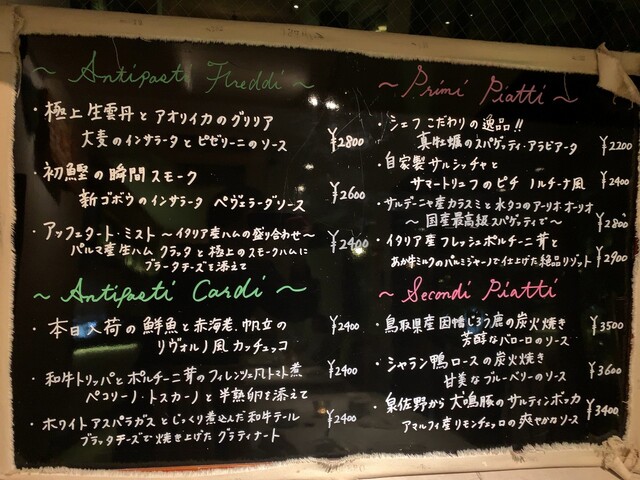 ~ Antipasti Freddi ~
・極上生雲丹とアオリイカのグリリア
大麦のインサラータとピゼリーニのソース ¥2800
・初鰹の瞬間スモーク
新ゴボウのインサラータ ペヴェラーダソース ¥2600
・アッフェタート・ミスト ～イタリア産ハムの盛り合わせ～
パルマ産生ハム クラッタと極上のスモークハムに ¥2400
ブラータチーズを添えて
~ Antipasti Cardi ~
・本日入荷の鮮魚と赤海老、帆立の ¥2400
リヴォルノ風カッチュッコ
・和牛トリッパとポルチーニ茸のフィレンツェ風トマト煮 ¥2400
ペコリーノ・トスカーノと半熟卵を添えて
・ホワイトアスパラガスとじっくり煮込んだ和牛テール ¥2400
ブラッタチーズで焼き上げた グラティナート
~ Primi Piatti ~
・シェフこだわりの逸品!!
真牡蠣のスパゲッティ・アラビアータ ¥2200
・自家製サルシッチャと
サマートリュフのピチ ノルチーナ風 ¥2400
・サルデーニャ産カラスミと水タコのアーリオオーリオ
～国産最高級スパゲッティで～ ¥2800
・イタリア産フレッシュポルチーニ茸と
あか牛ミルクのパルミジャーノで仕上げた絶品リゾット ¥2900
~ Secondi Piatti
・鳥取県産因幡じょう鹿の炭火焼き ¥3500
芳醇なバローロのソース
・シャラン鴨ロースの炭火焼き ¥3600
甘美なブルーベリーのソース
・泉佐野から犬鳴豚のサルティンボッカ ¥3400
アマルフィ産リモンチェッロの爽やかなソース